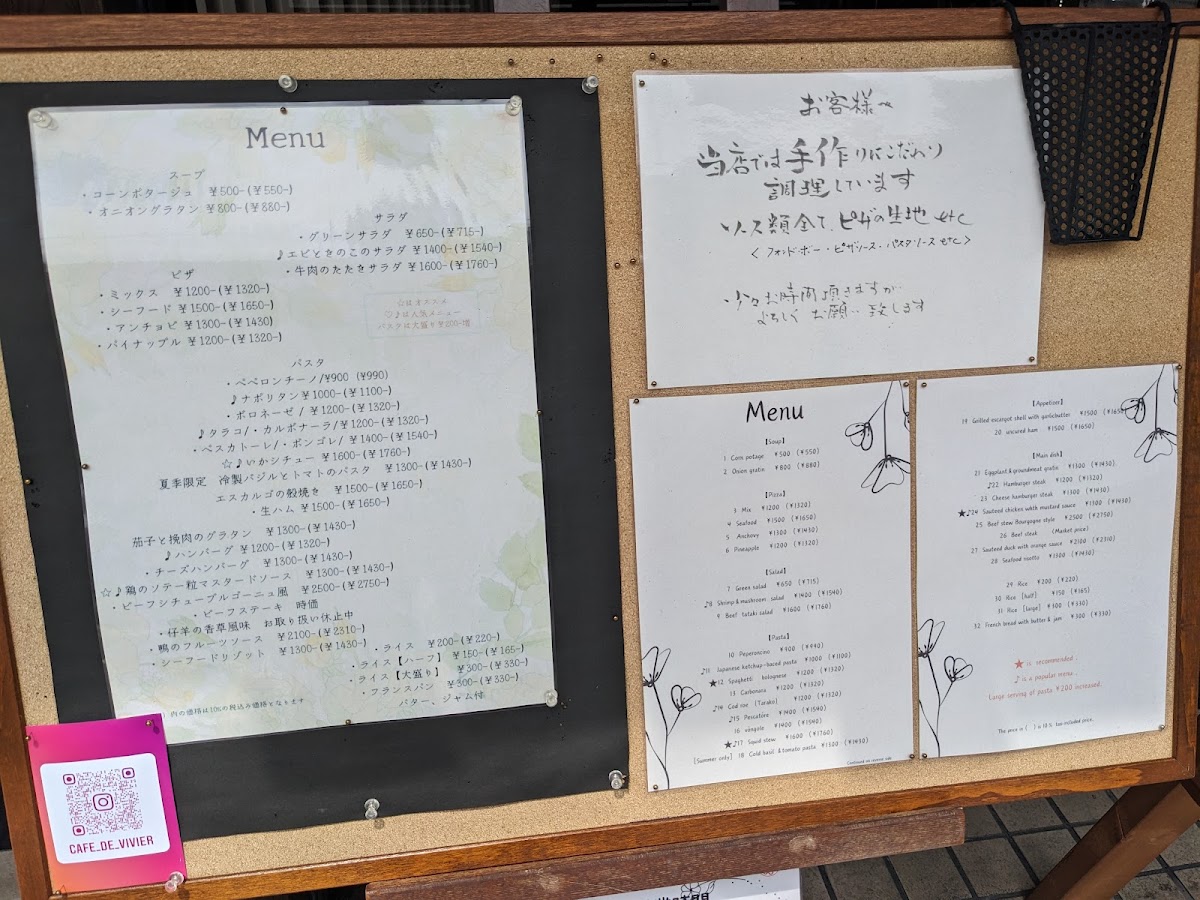 Menu
スープ
・コーンポタージュ ¥500-(¥550-)
・オニオングラタン ¥800-(¥880-)
サラダ
・グリーンサラダ ¥650-(¥715-)
♪エビときのこのサラダ ¥1400-(¥1540-)
・牛肉のたたきサラダ ¥1600-(¥1760-)
ピザ
・ミックス ¥1200-(¥1320-)
・シーフード ¥1500-(¥1650-)
・アンチョビ ¥1300-(¥1430)
・パイナップル ¥1200-(¥1320-)
☆はオススメ
♡♪は人気メニュー
パスタは大盛り¥200-増
パスタ
・ペペロンチーノ/¥900 (¥990)
♪ナポリタン¥1000-(¥1100-)
・ボロネーゼ / ¥1200-(¥1320-)
♪タラコ/・カルボナーラ/¥1200-(¥1320-)
・ペスカトーレ/・ボンゴレ/ ¥1400-(¥1540-)
☆♪いかシチュー ¥1600-(¥1760-)
夏季限定 冷製バジルとトマトのパスタ ¥1300-(¥1430-)
エスカルゴの殻焼き ¥1500-(¥1650-)
・生ハム ¥1500-(¥1650-)
茄子と挽肉のグラタン ¥1300-(¥1430-)
♪ハンバーグ ¥1200-(¥1320-)
・チーズハンバーグ ¥1300-(¥1430-)
☆♪鶏のソテー粒マスタードソース ¥1300-(¥1430-)
・ビーフシチューブルゴーニュ風 ¥2500-(¥2750-)
・ビーフステーキ 時価
・仔羊の香草風味 お取り扱い休止中
・鴨のフルーツソース ¥2100-(¥2310-)
・シーフードリゾット ¥1300-(¥1430-)
・ライス ¥200-(¥220-)
・ライス【ハーフ】 ¥150-(¥165-)
・ライス【大盛り】 ¥300-(¥330-)
・フランスパン ¥300-(¥330-)
バター、ジャム付
内の価格は10%の税込み価格となります
CAFE_DE_VIVIER
お客様へ
当店では手作りにこだわり
調理しています
ソース類全て、ピザの生地 etc
<フォンドボー・ピザソース・パスタソース etc>
少々お時間頂きますが
よろしくお願い致します
Menu
【Soup】
1 Corn potage ¥500 (¥550)
2 Onion gratin ¥800 (¥880)
【Pizza】
3 Mix ¥1200 (¥1320)
4 Seafood ¥1500 (¥1650)
5 Anchovy ¥1300 (¥1430)
6 Pineapple ¥1200 (¥1320)
【Salad】
7 Green salad ¥650 (¥715)
♪8 Shrimp & mushroom salad ¥1400 (¥1540)
9 Beef tataki salad ¥1600 (¥1760)
【Pasta】
10 Peperoncino ¥900 (¥990)
♪11 Japanese ketchup-based pasta ¥1000 (¥1100)
★12 Spaghetti bolognese ¥1200 (¥1320)
13 Carbonara ¥1200 (¥1320)
♪14 Cod roe (Tarako) ¥1200 (¥1320)
♪15 Pescatore ¥1400 (¥1540)
16 vongole ¥1400 (¥1540)
★♪17 Squid stew ¥1600 (¥1760)
[Summer only] 18 Cold basil & tomato pasta ¥1320 (¥1430)
Continued on reverse side
【Appetizer】
19 Grilled escargot shell with garlicbutter ¥1500 (¥1650
20 uncured ham ¥1500 (¥1650)
【Main dish】
21 Eggplant & groundmeat gratin ¥1300 (¥1430)
♪22 Hamburger steak ¥1200 (¥1320)
23 Cheese hamburger steak ¥1300 (¥1430)
★♪24 Sauteed chicken wkth mustard sauce ¥1300 (¥1430)
25 Beef stew Bourgogne style ¥2500 (¥2750)
26 Beef steak (Market price)
27 Sauteed duck with orange sauce ¥2100 (¥2310)
28 Seafood risotto ¥1300 (¥1430)
29 Rice ¥200 (¥220)
30 Rice [half] ¥150 (¥165)
31 Rice [large] ¥300 (¥330)
32 French bread with butter & jam ¥300 (¥330)
★ is recommended .
♪ is a popular menu .
Large serving of pasta ¥200 increased.
The price in ( ) is 10% tax-included price.